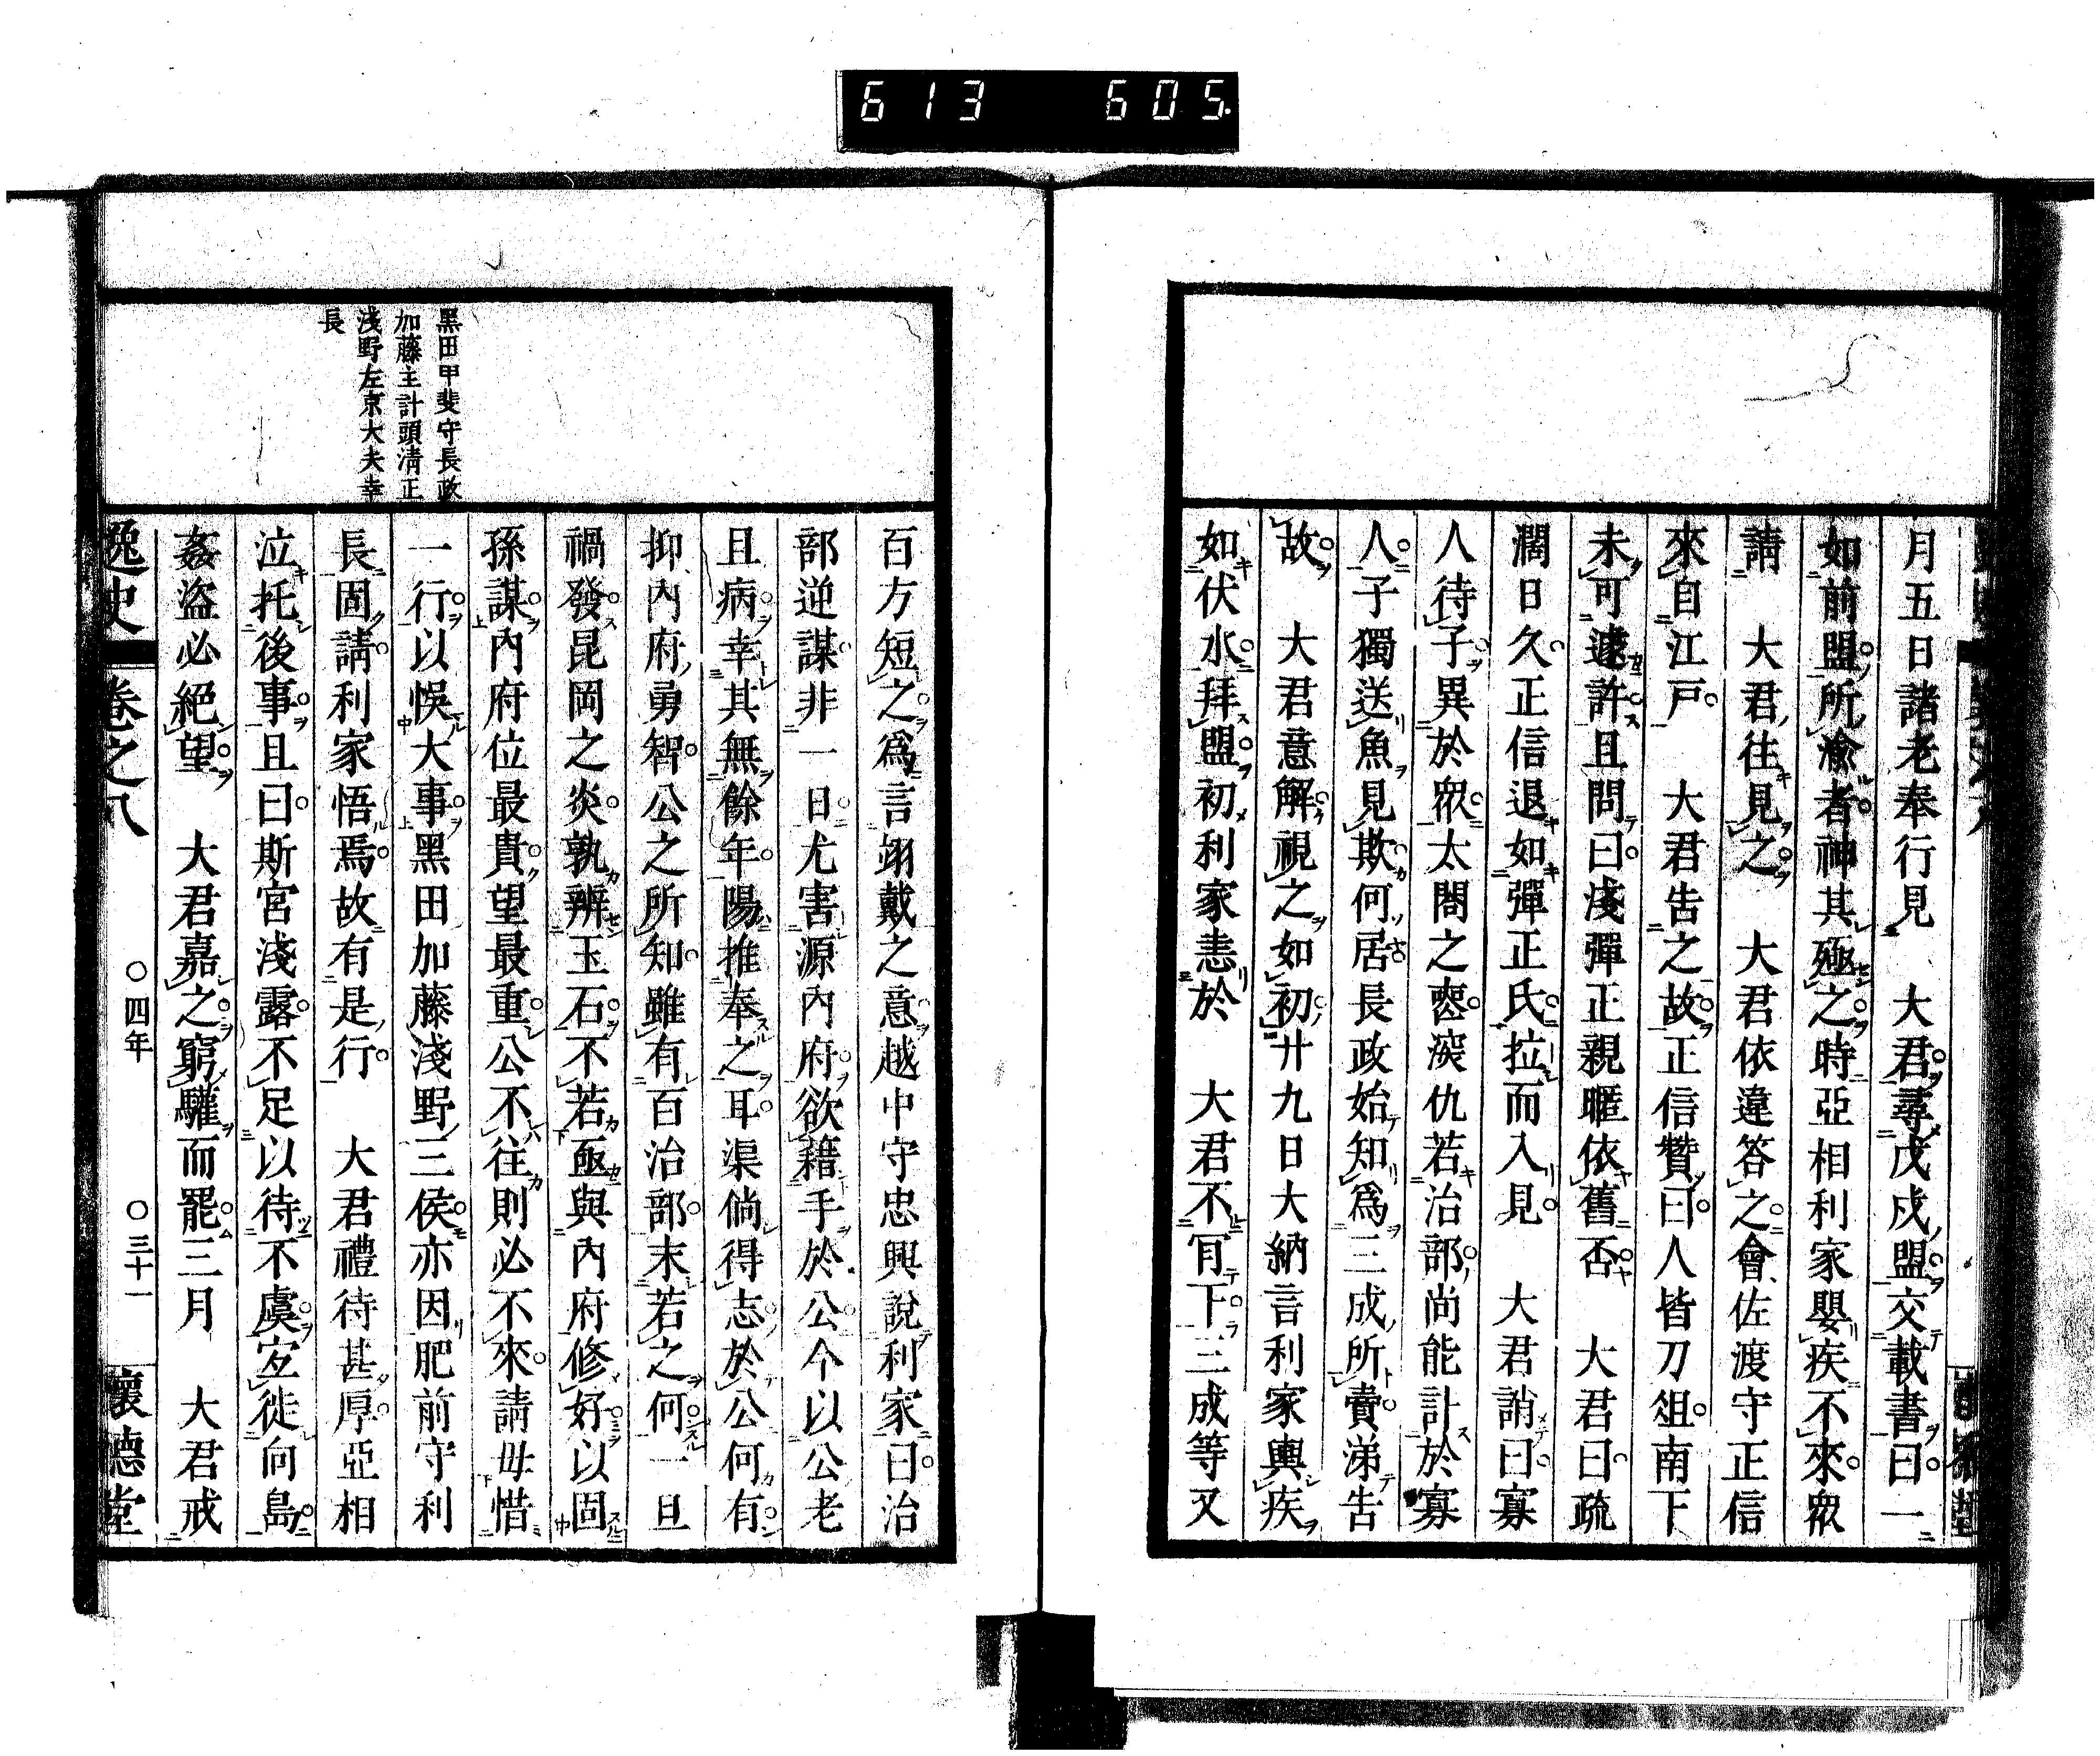 613 605.
月五日諸老奉行見　大君尋戊戍盟交載書曰一
如前盟所渝者神其殛之時亞相利家嬰疾不來衆
請　大君往見之　大君依違答之會佐渡守正信
來自江戸　大君告之故正信贊曰人皆刀俎南下
未可遽許且問曰淺彈正親暱依舊否　大君曰疏
濶日久正信退如彈正氏拉而入見　大君誚曰寡
人待子異於衆太閤之喪深仇若治部尚能計於寡
人子獨送魚見欺何居長政始知爲三成所賣涕告
故　大君意解視之如初廿九日大納言利家輿疾
如伏水拜盟初利家恚於　大君不肎下三成等又
黑田甲斐守長政
加藤主計頭清正
淺野左京大夫幸
長
百方短之爲言翊戴之意越中守忠興說利家曰治
部逆謀非一日尤害源內府欲藉手於公今以公老
且病幸其無餘年陽推奉之耳渠倘得志於公何有
抑內府勇智公之所知雖有百治部末若之何一旦
禍發昆岡之炎孰辨玉石不若亟與內府修好以固
孫謀內府位最貴望最重公不往則必不來請毋惜
一行以悞大事黑田加藤淺野三侯亦因肥前守利
長固請利家悟焉故有是行　大君禮待甚厚亞相
泣托後事且曰斯宮淺露不足以待不虞宐徙向島
姦盜必絕望　大君嘉之窮驩而罷三月　大君戒
逸史　卷之八　○四年　○三十一　懷德堂